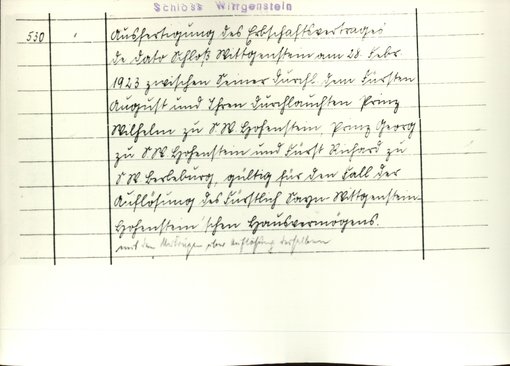 Schloss Wittgenstein
530 Ausfertigung des Erbschaftsvertrages
de dato Schloß Wittgenstein am 28. Febr
1923 zwischen Seiner Durchl. dem Fürsten
August und Ihren Durchlauchten Prinz
Wilhelm zu S W Hohenstein, Prinz Georg
zu S W Hohenstein und Fürst Richard zu
S W Berleburg, gültig für den Fall der
Auflösung des Fürstlich Sayn-Wittgenstein-
Hohenstein'schen Hausvermögens.
mit den Auflösung derselben